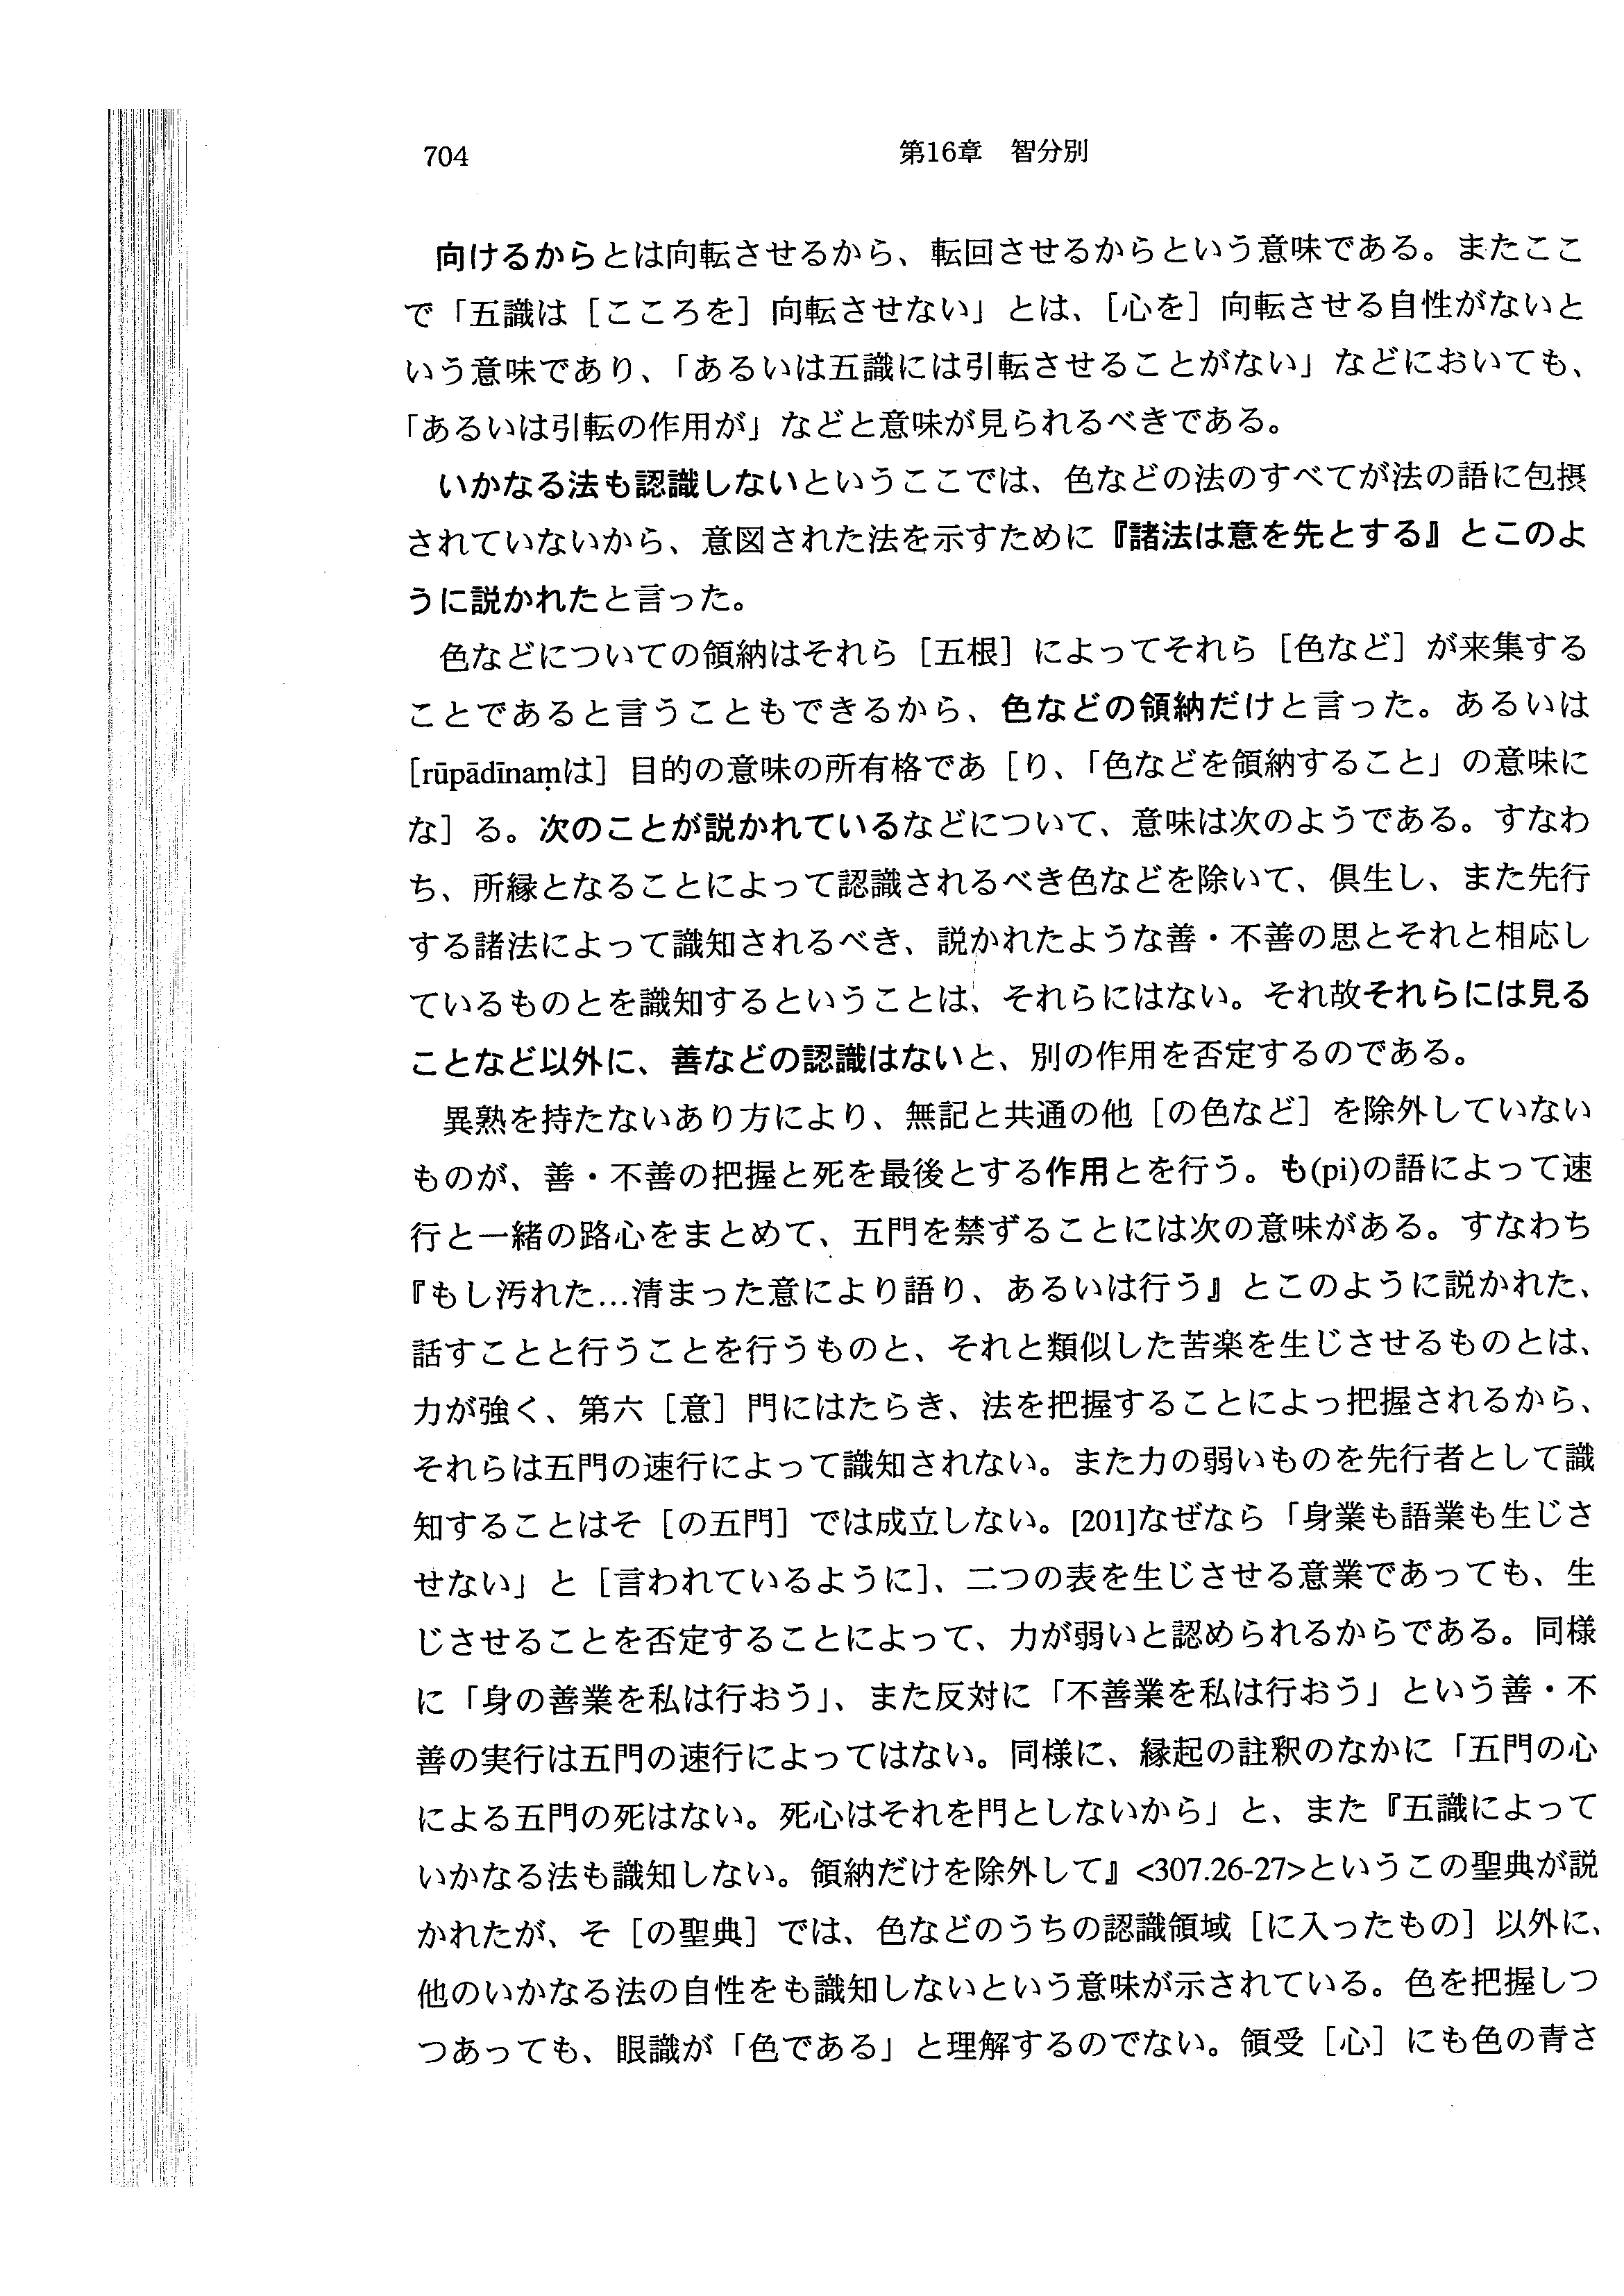 704
第16章　智分別
向けるからとは向転させるから、転回させるからという意味である。またここ
で「五識は［こころを］向転させない」とは、［心を］向転させる自性がないと
いう意味であり、「あるいは五識には引転させることがない」などにおいても、
「あるいは引転の作用が」などと意味が見られるべきである。
いかなる法も認識しないというここでは、色などの法のすべてが法の語に包摂
されていないから、意図された法を示すために『諸法は意を先とする』とこのよ
うに説かれたと言った。
色などについての領納はそれら［五根］によってそれら［色など］が来集する
ことであると言うこともできるから、色などの領納だけと言った。あるいは
[rūpādīnaṃは］目的の意味の所有格であ［り、「色などを領納すること」の意味に
な］る。次のことが説かれているなどについて、意味は次のようである。すなわ
ち、所縁となることによって認識されるべき色などを除いて、倶生し、また先行
する諸法によって識知されるべき、説かれたような善・不善の思とそれと相応し
ているものとを識知するということは、それらにはない。それ故それらには見る
ことなど以外に、善などの認識はないと、別の作用を否定するのである。
異熟を持たないあり方により、無記と共通の他［の色など］を除外していない
ものが、善・不善の把握と死を最後とする作用とを行う。も(pi)の語によって速
行と一緒の路心をまとめて、五門を禁ずることには次の意味がある。すなわち
『もし汚れた…清まった意により語り、あるいは行う』とこのように説かれた、
話すことと行うことを行うものと、それと類似した苦楽を生じさせるものとは、
力が強く、第六［意］門にはたらき、法を把握することによっ把握されるから、
それらは五門の速行によって識知されない。また力の弱いものを先行者として識
知することはそ［の五門］では成立しない。[201]なぜなら「身業も語業も生じさ
せない」と［言われているように］、二つの表を生じさせる意業であっても、生
じさせることを否定することによって、力が弱いと認められるからである。同様
に「身の善業を私は行おう」、また反対に「不善業を私は行おう」という善・不
善の実行は五門の速行によってはない。同様に、縁起の註釈のなかに「五門の心
による五門の死はない。死心はそれを門としないから」と、また『五識によって
いかなる法も識知しない。領納だけを除外して』<307.26-27>というこの聖典が説
かれたが、そ［の聖典］では、色などのうちの認識領域［に入ったもの］以外に、
他のいかなる法の自性をも識知しないという意味が示されている。色を把握しつ
つあっても、眼識が「色である」と理解するのでない。領受［心］にも色の青さ